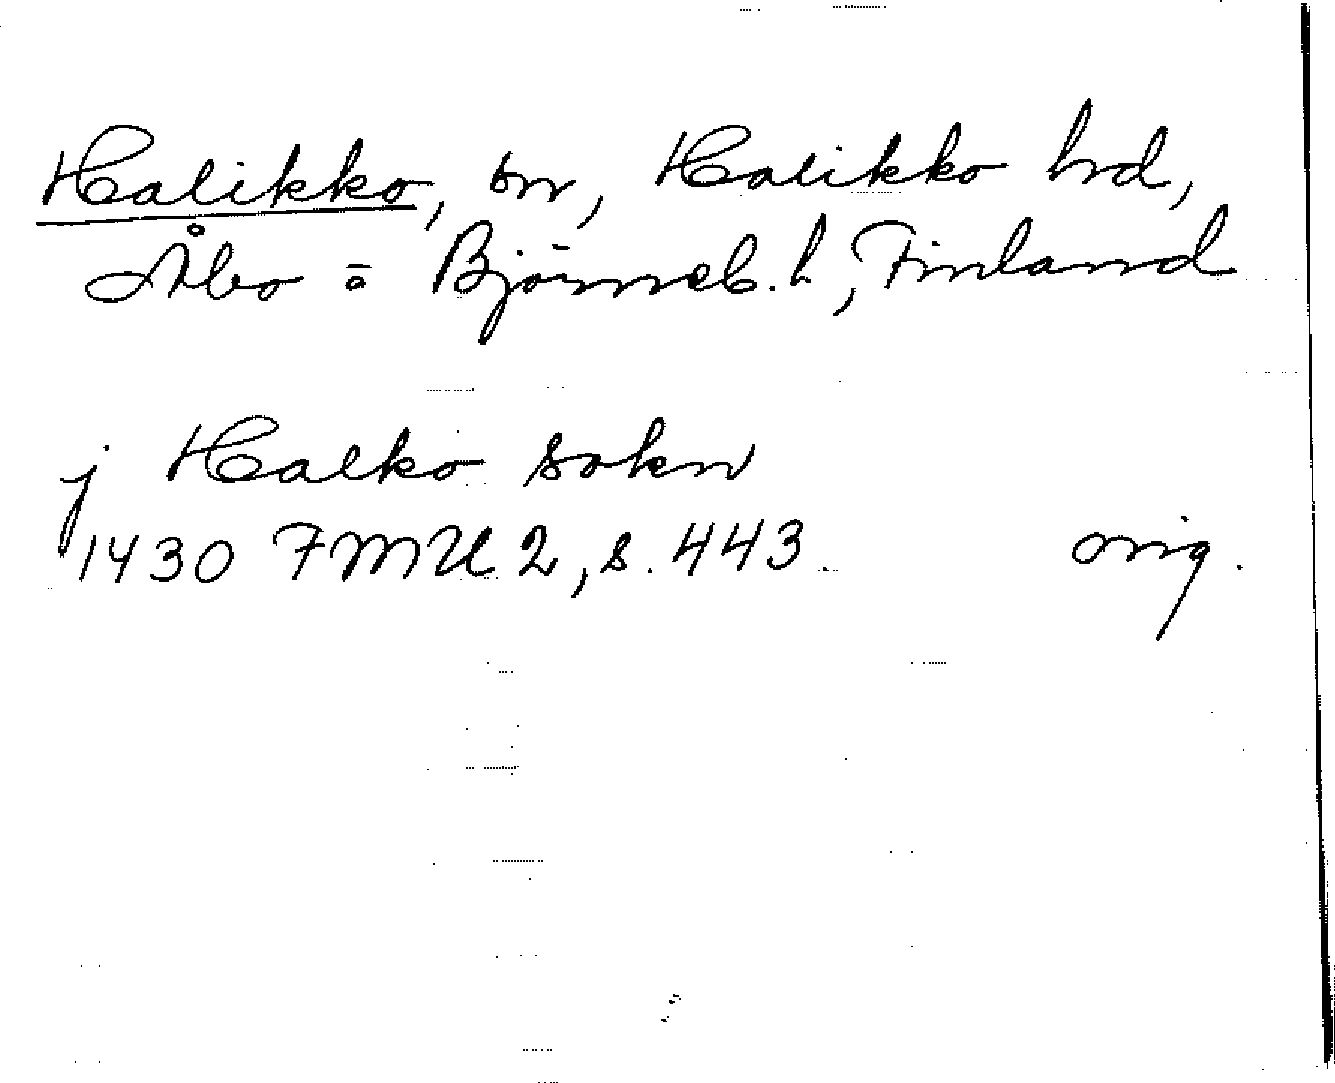 Halikko, sn, Halikko hd,
Åbo o Björneb. l, Finland
j Halko sokn
1430 FMU 2, s. 443. orig.